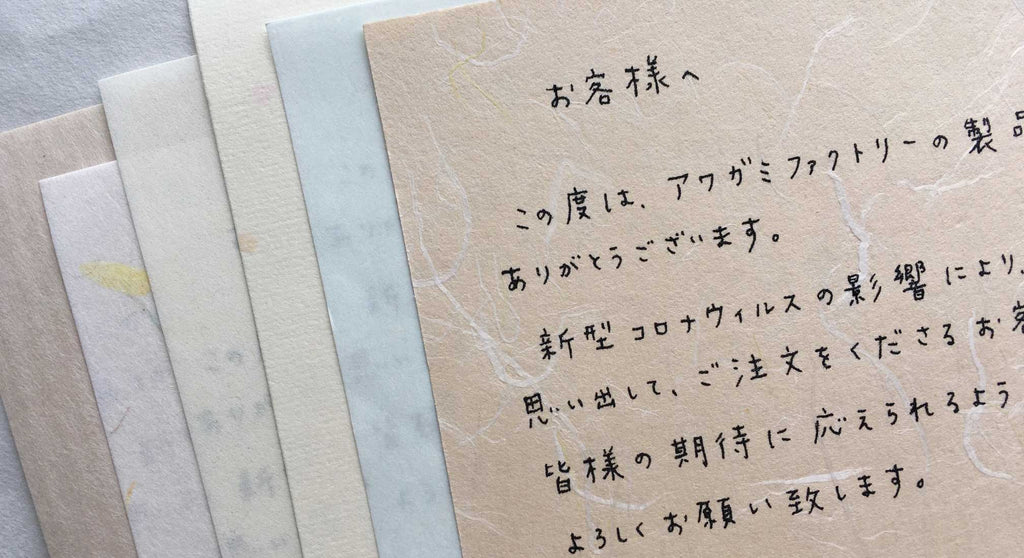 お客様へ
この度は、アワガミファクトリーの製品
ありがとうございます。
新型コロナウィルスの影響により、
思い出して、ご注文をくださるお客
皆様の期待に応えられるよう
よろしくお願い致します。
この
あり
新